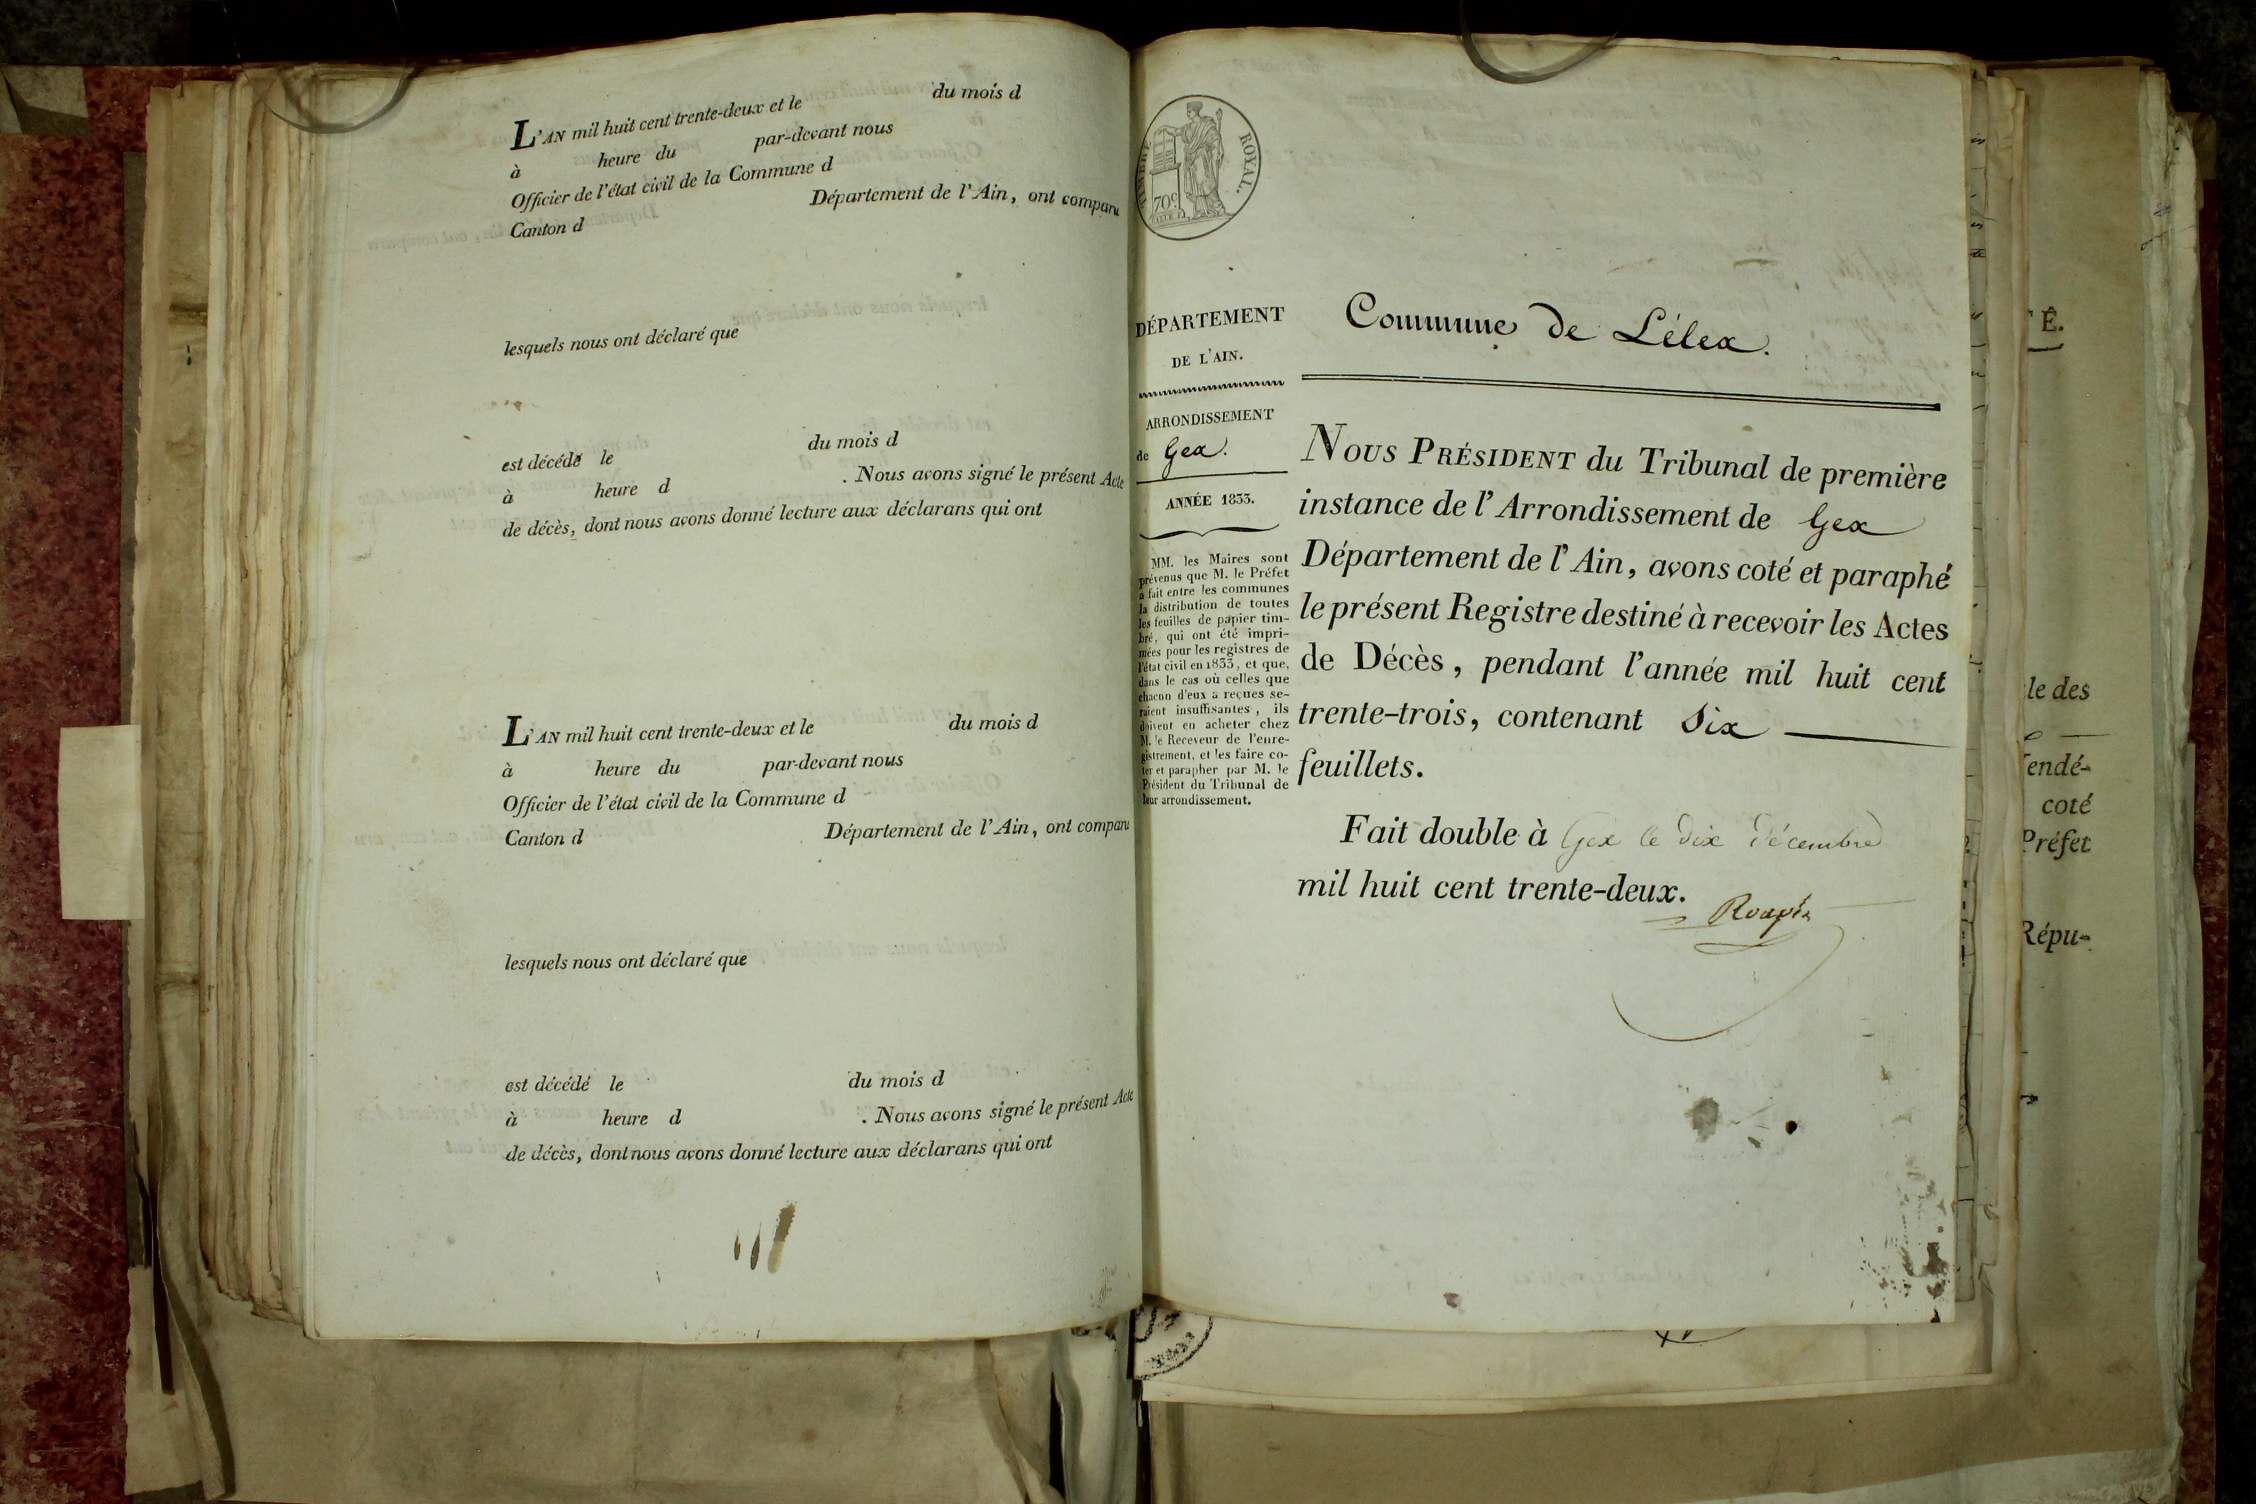 L'AN mil huit cent trente-deux et le du mois d
à heure du par-devant nous
Officier de l'état civil de la Commune d
Canton d Département de l'Ain, ont comparu
lesquels nous ont déclaré que
est décédé le du mois d
à heure d . Nous avons signé le présent Acte
de décès, dont nous avons donné lecture aux déclarans qui ont
L'AN mil huit cent trente-deux et le du mois d
à heure du par-devant nous
Officier de l'état civil de la Commune d
Canton d Département de l'Ain, ont comparu
lesquels nous ont déclaré que
est décédé le du mois d
à heure d . Nous avons signé le présent Acte
de décès, dont nous avons donné lecture aux déclarans qui ont
TIMBRE ROYAL.
70c.
DÉPARTEMENT
DE L'AIN.
ARRONDISSEMENT
de Gex.
ANNÉE 1833.
MM. les Maires sont
prévenus que M. le Préfet
a fait entre les communes
la distribution de toutes
les feuilles de papier tim-
bré, qui ont été impri-
mées pour les registres de
l'état civil en 1833, et que,
dans le cas où celles que
chacun d'eux a reçues se-
raient insuffisantes, ils
doivent en acheter chez
M. le Receveur de l'enre-
gistrement, et les faire co-
ter et parapher par M. le
Président du Tribunal de
leur arrondissement.
Commune de Lélex.
NOUS PRÉSIDENT du Tribunal de première
instance de l'Arrondissement de Gex
Département de l'Ain, avons coté et paraphé
le présent Registre destiné à recevoir les Actes
de Décès, pendant l'année mil huit cent
trente-trois, contenant Six
feuillets.
Fait double à Gex le dix décembre
mil huit cent trente-deux.
É.
le des
endé-
coté
Préfet
Répu-